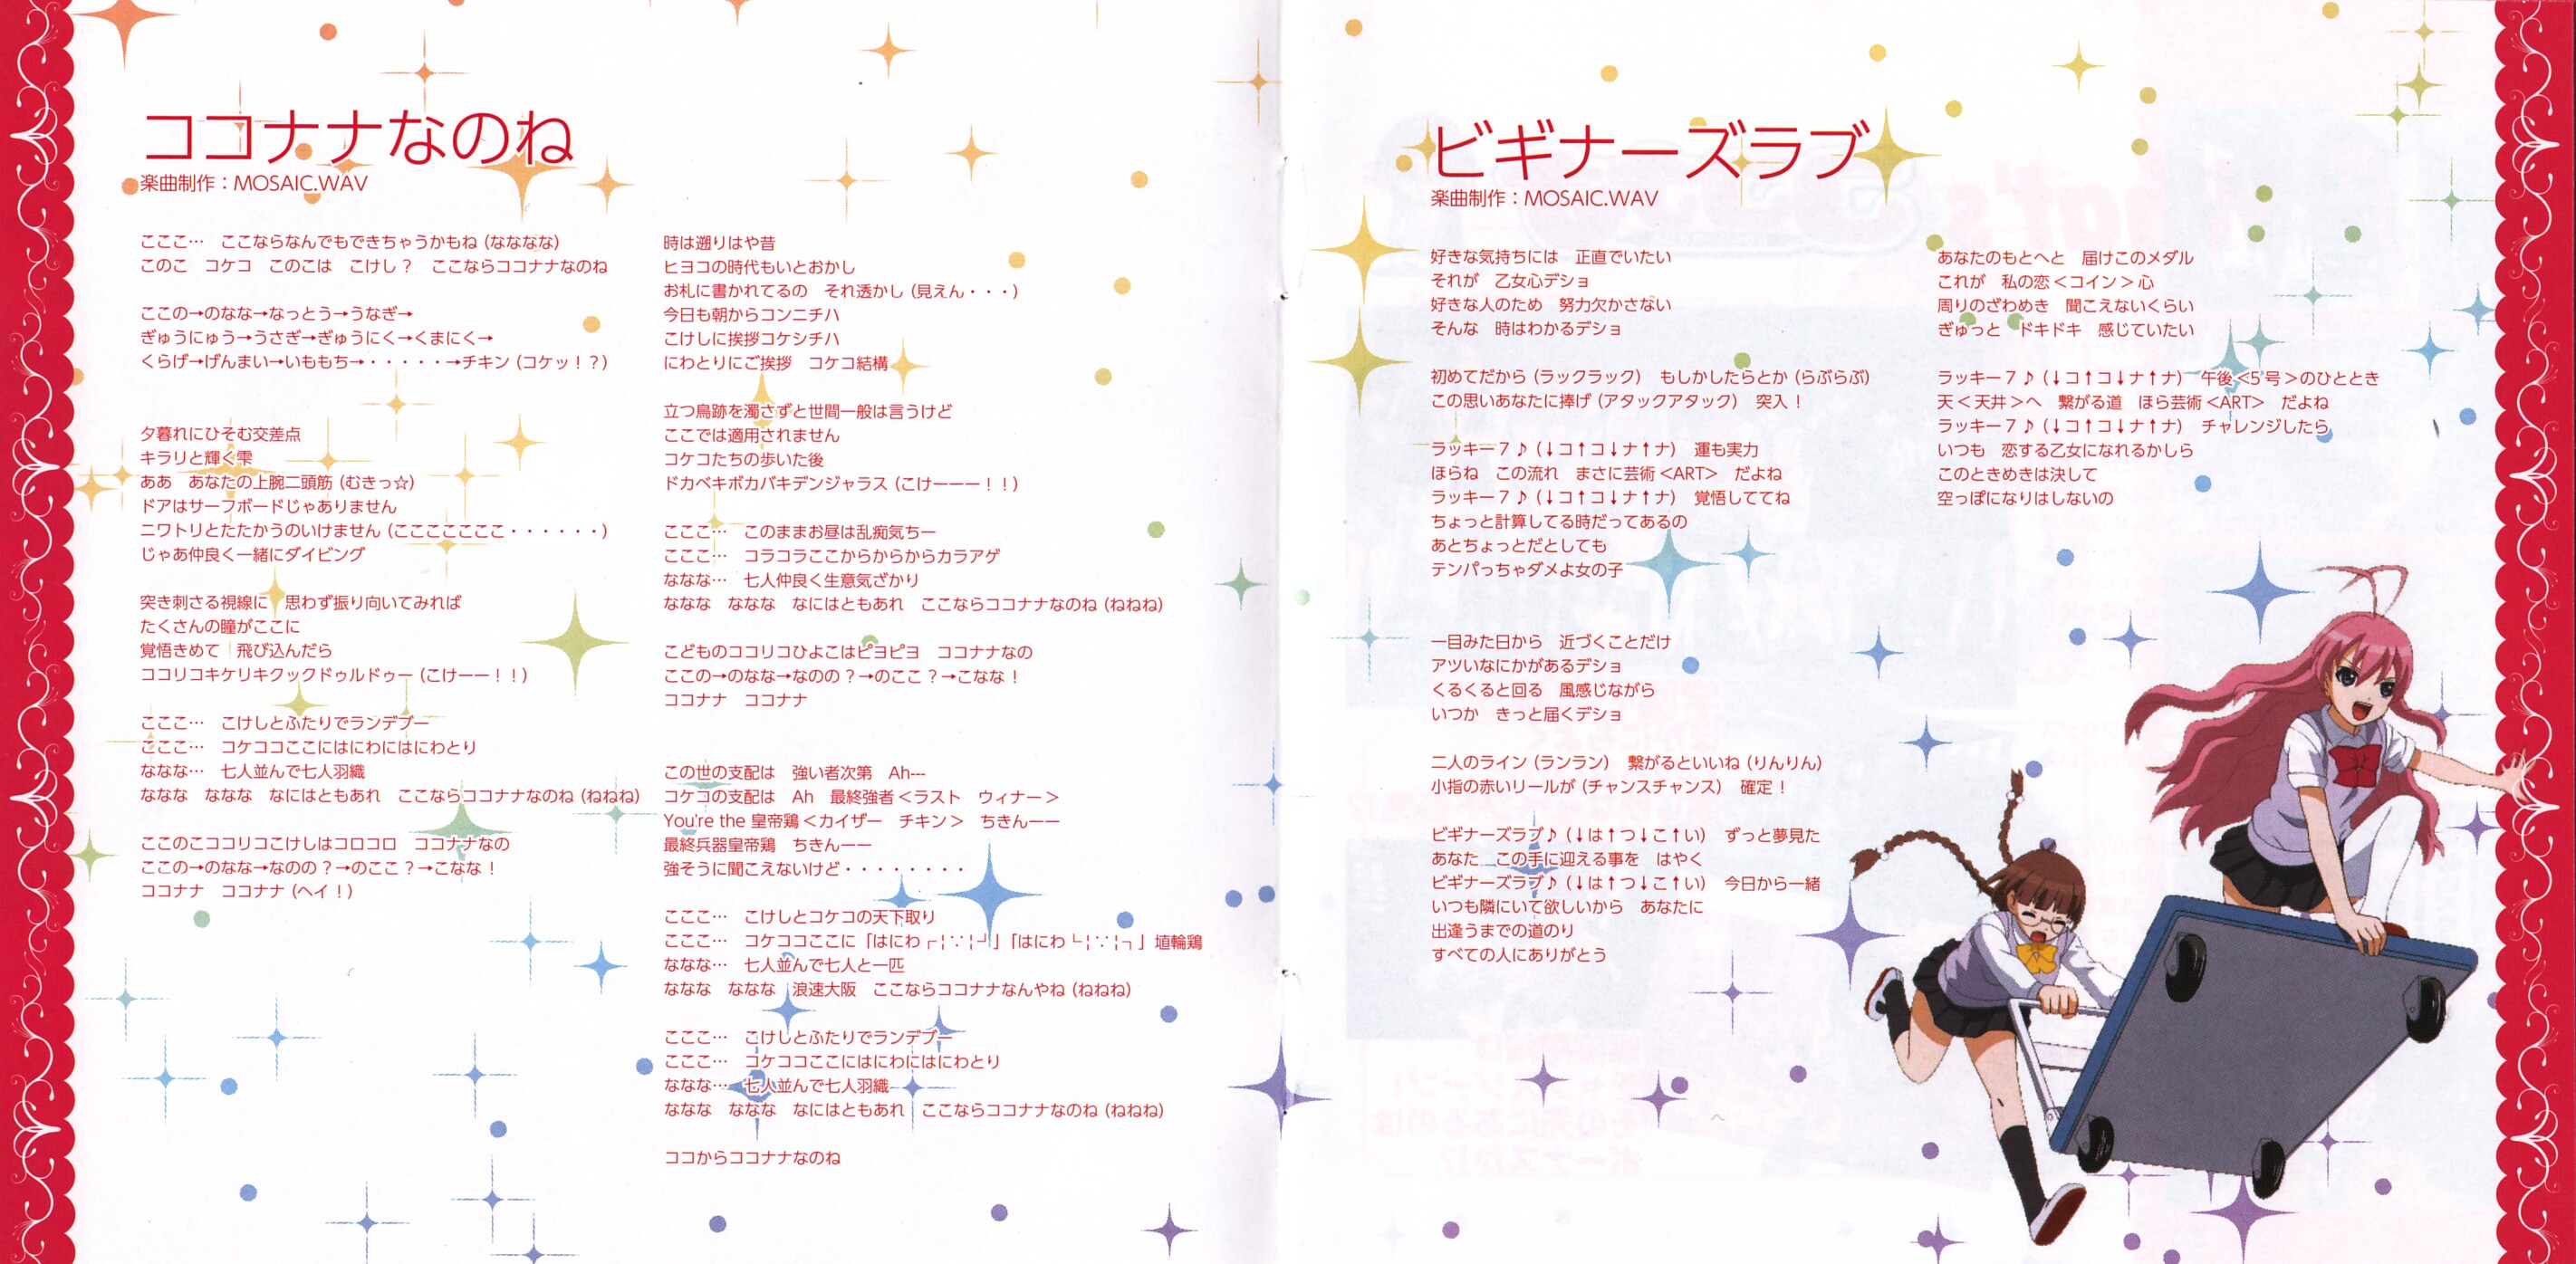 ココナナなのね
楽曲制作：MOSAIC.WAV
こここ…　ここならなんでもできちゃうかもね（なななな）
このこ　コケコ　このこは　こけし？　ここならココナナなのね
ここの→のなな→なっとう→うなぎ→
ぎゅうにゅう→うさぎ→ぎゅうにく→くまにく→
くらげ→げんまい→いももち→・・・・・→チキン（コケッ！？）
夕暮れにひそむ交差点
キラリと輝く雫
ああ　あなたの上腕二頭筋（むきっ☆）
ドアはサーフボードじゃありません
ニワトリとたたかうのいけません（こここここここ・・・・・・）
じゃあ仲良く一緒にダイビング
突き刺さる視線に　思わず振り向いてみれば
たくさんの瞳がここに
覚悟きめて　飛び込んだら
ココリコキケリキクックドゥルドゥー（こけーー！！）
こここ…　こけしとふたりでランデブー
こここ…　コケココここにはにわにはにわとり
ななな…　七人並んで七人羽織
ななな　ななな　なにはともあれ　ここならココナナなのね（ねねね）
ここのこココリコこけしはコロコロ　ココナナなの
ここの→のなな→なのの？→のここ？→こなな！
ココナナ　ココナナ（ヘイ！）
時は遡りはや昔
ヒヨコの時代もいとおかし
お札に書かれてるの　それ透かし（見えん・・・）
今日も朝からコンニチハ
こけしに挨拶コケシチハ
にわとりにご挨拶　コケコ結構
立つ鳥跡を濁さずと世間一般は言うけど
ここでは適用されません
コケコたちの歩いた後
ドカベキボカバキデンジャラス（こけーーー！！）
こここ…　このままお昼は乱痴気ちー
こここ…　コラコラここからからからカラアゲ
ななな…　七人仲良く生意気ざかり
ななな　ななな　なにはともあれ　ここならココナナなのね（ねねね）
こどものココリコひよこはピヨピヨ　ココナナなの
ここの→のなな→なのの？→のここ？→こなな！
ココナナ　ココナナ
この世の支配は　強い者次第　Ah---
コケコの支配は　Ah　最終強者＜ラスト　ウィナー＞
You're the 皇帝鶏＜カイザー　チキン＞　ちきんーー
最終兵器皇帝鶏　ちきんーー
強そうに聞こえないけど・・・・・・・・
こここ…　こけしとコケコの天下取り
こここ…　コケココここに「はにわ┌|∵|┘」「はにわ└|∵|┐」埴輪鶏
ななな…　七人並んで七人と一匹
ななな　ななな　浪速大阪　ここならココナナなんやね（ねねね）
こここ…　こけしとふたりでランデブー
こここ…　コケココここにはにわにはにわとり
ななな…　七人並んで七人羽織
ななな　ななな　なにはともあれ　ここならココナナなのね（ねねね）
ココからココナナなのね
ビギナーズラブ
楽曲制作：MOSAIC.WAV
好きな気持ちには　正直でいたい
それが　乙女心デショ
好きな人のため　努力欠かさない
そんな　時はわかるデショ
初めてだから（ラックラック）　もしかしたらとか（らぶらぶ）
この思いあなたに捧げ（アタックアタック）　突入！
ラッキー７♪（↓コ↑コ↓ナ↑ナ）　運も実力
ほらね　この流れ　まさに芸術＜ART＞　だよね
ラッキー７♪（↓コ↑コ↓ナ↑ナ）　覚悟しててね
ちょっと計算してる時だってあるの
あとちょっとだとしても
テンパっちゃダメよ女の子
一目みた日から　近づくことだけ
アツいなにかがあるデショ
くるくると回る　風感じながら
いつか　きっと届くデショ
二人のライン（ランラン）　繋がるといいね（りんりん）
小指の赤いリールが（チャンスチャンス）　確定！
ビギナーズラブ♪（↓は↑つ↓こ↑い）　ずっと夢見た
あなた　この手に迎える事を　はやく
ビギナーズラブ♪（↓は↑つ↓こ↑い）　今日から一緒
いつも隣にいて欲しいから　あなたに
出逢うまでの道のり
すべての人にありがとう
あなたのもとへと　届けこのメダル
これが　私の恋＜コイン＞心
周りのざわめき　聞こえないくらい
ぎゅっと　ドキドキ　感じていたい
ラッキー７♪（↓コ↑コ↓ナ↑ナ）　午後＜5号＞のひととき
天＜天井＞へ　繋がる道　ほら芸術＜ART＞　だよね
ラッキー７♪（↓コ↑コ↓ナ↑ナ）　チャレンジしたら
いつも　恋する乙女になれるかしら
このときめきは決して
空っぽになりはしないの